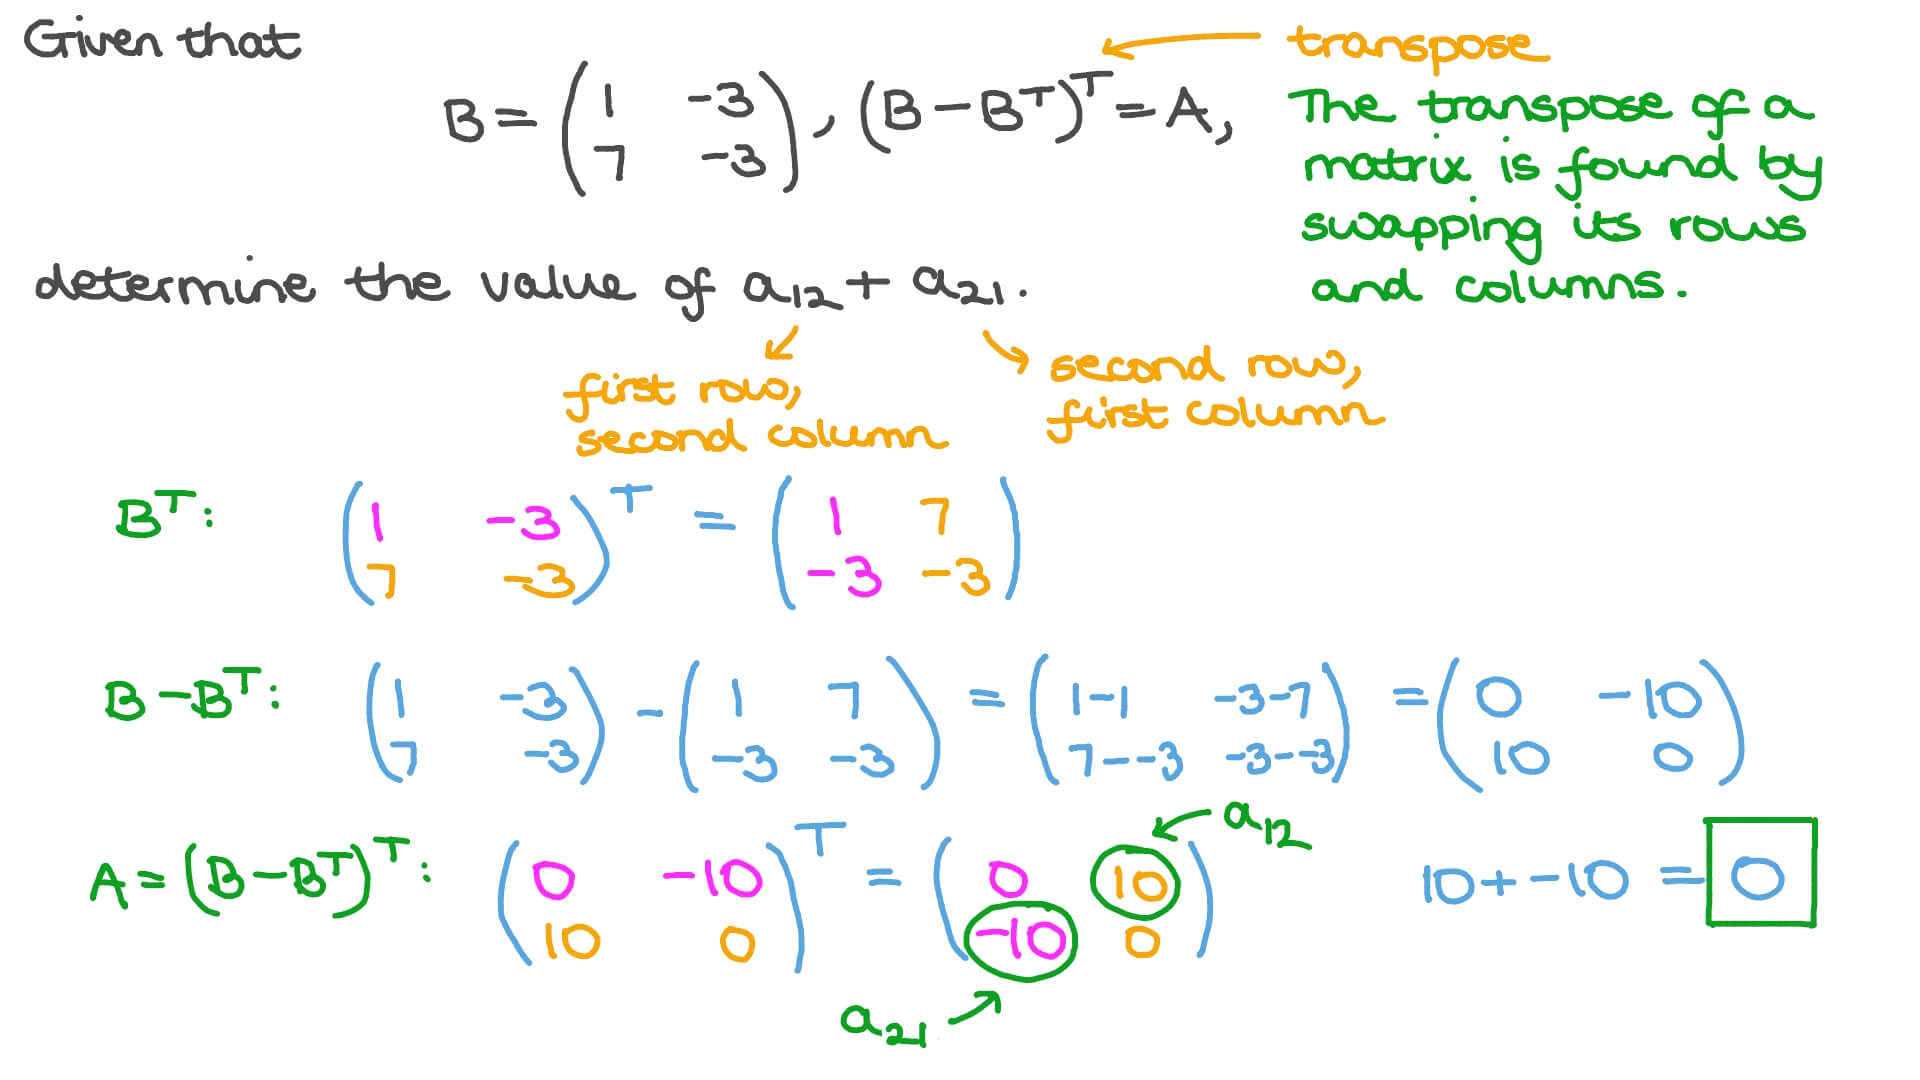 Given that
B = (1 -3
7 -3), (B - Bᵀ)ᵀ = A,
transpose
The transpose of a
matrix is found by
swapping its rows
and columns.
determine the value of a₁₂ + a₂₁.
first row,
second column
second row,
first column
Bᵀ: (1 -3
7 -3)ᵀ = (1 7
-3 -3)
B - Bᵀ: (1 -3
7 -3) - (1 7
-3 -3) = (1-1 -3-7
7--3 -3--3) = (0 -10
10 0)
A = (B - Bᵀ)ᵀ: (0 -10
10 0)ᵀ = (0 10
-10 0)
a₁₂
a₂₁
10 + -10 = 0